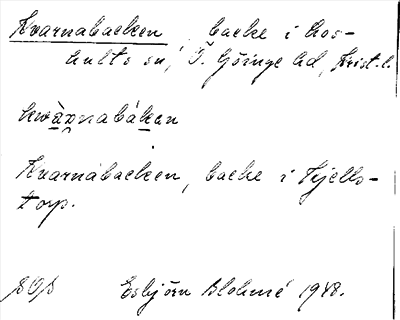 Kvarnabacken, backe i Los-
hults sn, Ö. Göinge hd, Krist. l.
kwàṇnabákan
Kvarnabacken, backe i Kjells-
torp.
Esbjörn Blohmé 1948.